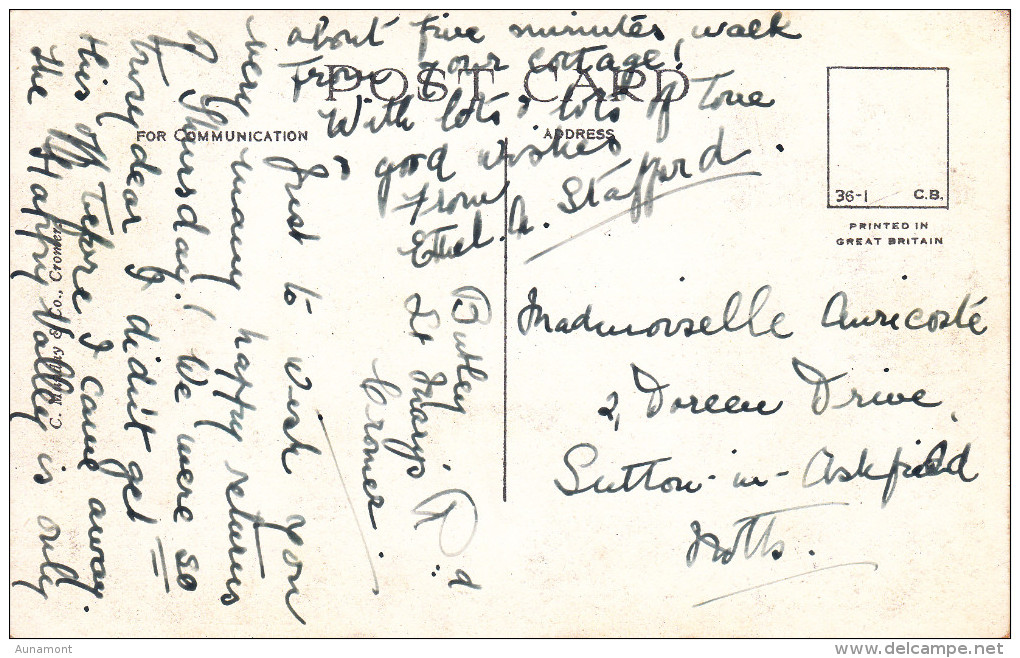 POST CARD
FOR COMMUNICATION
ADDRESS
36-1 C.B.
PRINTED IN
GREAT BRITAIN
Butley
St Mary's Rd
Cromer.
Just to wish you
very many happy returns
of Thursday. We were so
busy dear I didn't get
this off before I came away.
The Happy Valley is only
about five minutes, walk
from your cottage!
With lots & lots of love
& good wishes
from
Ethel. A. Stafford.
Mademoiselle Auricosté
2, Doreen Drive,
Sutton-in-Ashfield
Notts.
& Co., Cromer.
Aunamont
www.delcampe.net